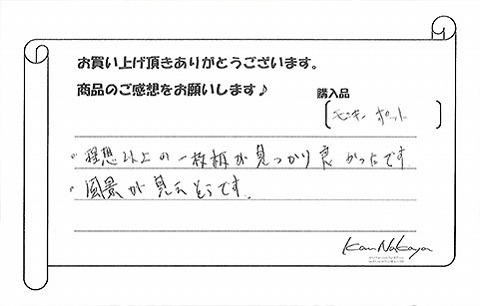 お買い上げ頂きありがとうございます。
商品のご感想をお願いします♪
購入品
ポット
・理想以上の一枚板が見つかり良かったです
・風景が見えそうです。
Kan Nakaya